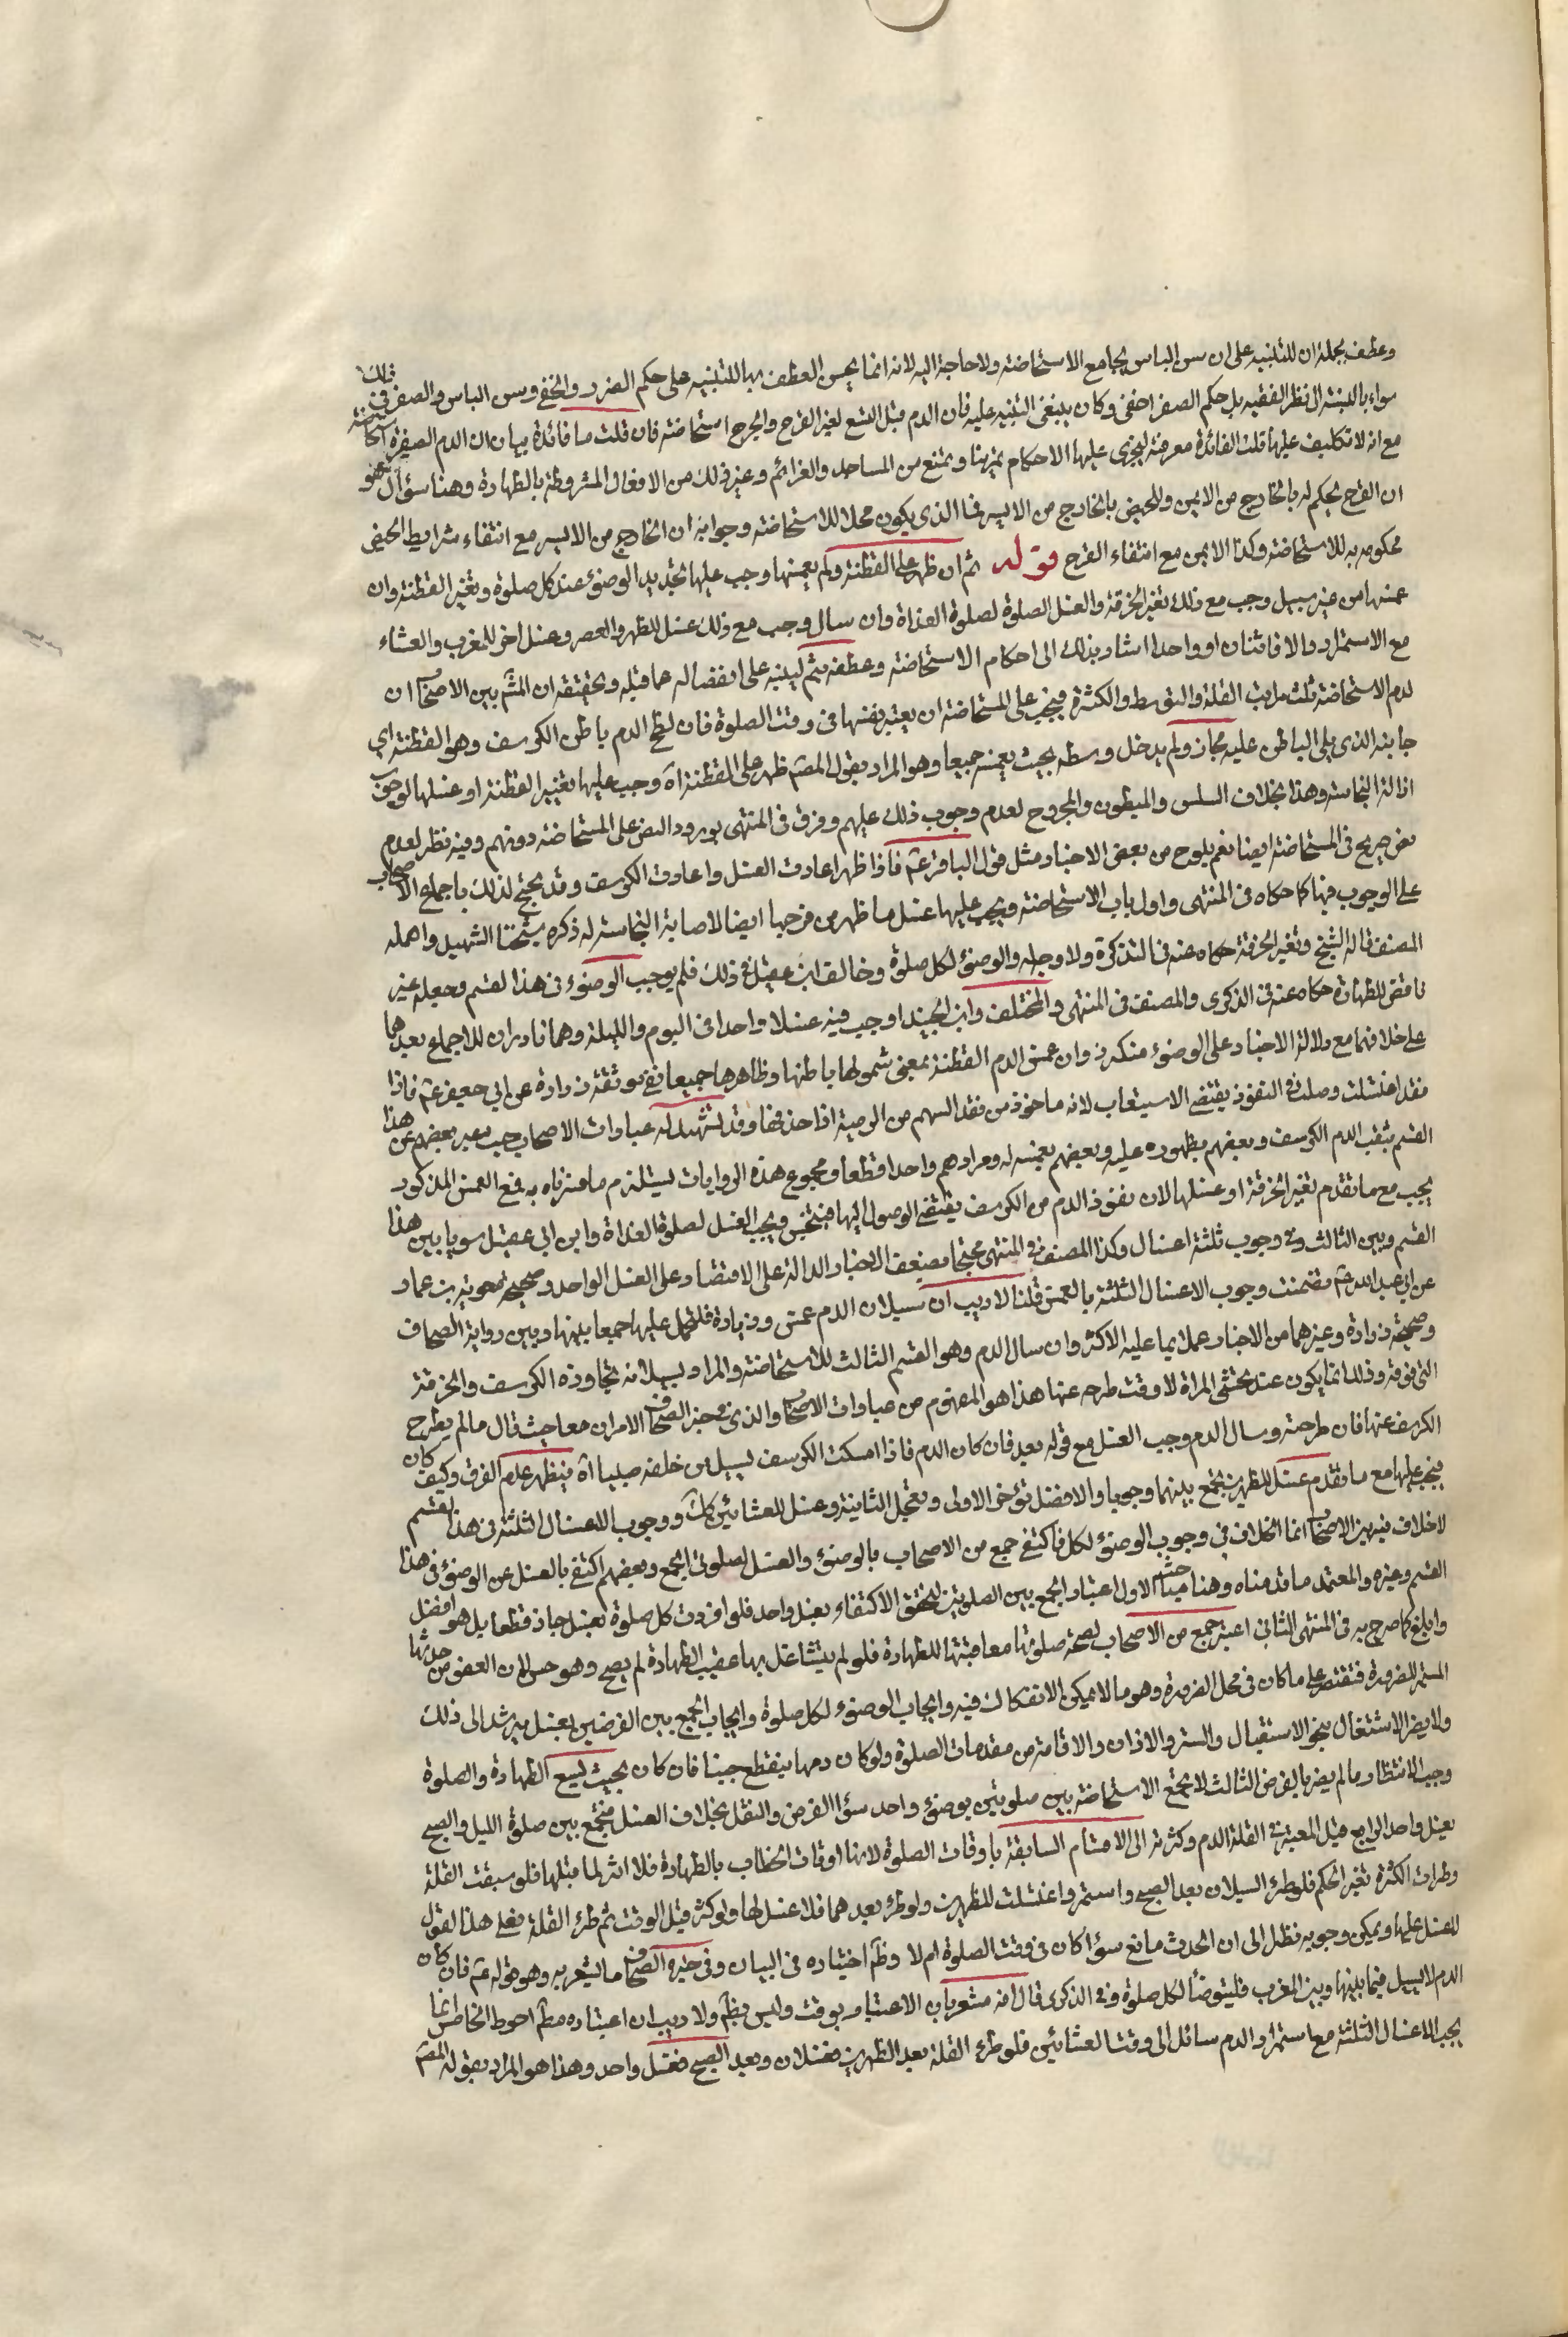 وعطف بجملة ان للتنبيه على ان سن الياس يجامع الاستحاضة ولا حاجة اليه لانه انما يحسن العطف بها للتنبيه على حكم الفرد والخفي وسن الياس والصغر في ذلك
سواء بالنسبة الى نظر الفقيه بل حكم الصغر اخفى وكان ينبغي التنبيه عليه فان الدم قبل التسع لغير القرح والجرح استحاضة فان قلت ما فائدة بيان ان الدم الصغيرة استحاضة
مع انه لا تكليف عليها قلت الفائدة معرفة ليجري عليها الاحكام تمرينا وتمنع من المساجد والعزائم وغير ذلك من الافعال المشروطة بالطهارة وهنا سؤال وهو
ان القرح يحكم له بالخارج من الايمن وللحيض بالخارج من الايسر فما الذي يكون محلا للاستحاضة وجوابه ان الخارج من الايسر مع انتفاء شرايط الحيض
محكوم به للاستحاضة وكذا الايمن مع انتفاء القرح قوله ثم ان ظهر على القطنة ولم يغمسها وجب عليها تجديد الوضوء عند كل صلوة وتغير القطنة وان
غمسها من غير سيل وجب مع ذلك تغير الخرقة والغسل الصلوة لصلوة الغداة وان سال وجب مع ذلك غسل للظهر والعصر وغسل اخر للمغرب والعشاء
مع الاستمرار والا فاثنان او واحدا اشار بذلك الى احكام الاستحاضة وعطفه بثم لينبه على انفصاله عما قبله وتحقيقه ان المشهور بين الاصحاب ان
لدم الاستحاضة ثلث مراتب القلة والتوسط والكثرة فيجب على المستحاضة ان يعتبر نفسها في وقت الصلوة فان لطخ الدم باطن الكرسف وهو القطنة اي
جانبه الذي يلي الباطن عليه مجاز ولم يدخل وسطه بحيث يغمسه جميعا وهو المراد بقول المصنف ظهر على القطنة اه وجب عليها تغيير القطنة او غسلها لوجوب
ازالة النجاسة وهذا بخلاف السلس والمبطون والمجروح لعدم وجوب ذلك عليهم وفرق في المنتهى بورود النص على المستحاضة دونهم وفيه نظر لعدم
نص صريح في المستحاضة ايضا نعم يلوح من بعض الاخبار مثل قول الباقر عم فاذا ظهر اعادت الغسل واعادت الكرسف وقد يحتج لذلك باجماع الاصحاب
على الوجوب فيها كما حكاه في المنتهى واول باب الاستحاضة ويجب عليها غسل ما ظهر من فرجها ايضا لاصابة النجاسة له ذكره شيخنا الشهيد واهمله
المصنف قاله الشيخ وتغير الخرقة حكاه عنه في التذكرة ولا وجه له والوضوء لكل صلوة وخالف ابن عقيل في ذلك فلم يوجب الوضوء في هذا القسم وجعله غير
ناقض للطهارة حكاه عنه في الذكرى والمصنف في المنتهى والمختلف وابن الجنيد اوجب فيه غسلا واحدا في اليوم والليلة وهما نادران للاجماع بعدهما
على خلافهما مع دلالة الاخبار على الوضوء متكررة وان غمس الدم القطنة بمعنى شمولها باطنها وظاهرها جميعا ففي موثقة زرارة عن ابي جعفر عم فاذا
نفذ اغتسلت وصلت والنفوذ يقتضي الاستيعاب لانه ماخوذ من نفذ السهم من الرمية اذا خرقها وقد تشهد له عبارات الاصحاب حيث عبر بعضهم عن هذا
القسم بثقب الدم الكرسف وبعضهم بظهوره عليه وبعضهم بغمسه له ومرادهم واحد قطعا ومجموع هذه الروايات يستلزم ما فسرناه به فمع الغمس المذكور
يجب مع ما تقدم تغير الخرقة او غسلها لان نفوذ الدم من الكرسف يقتضي الوصول اليها فينتجس ويجب الغسل لصلوة الغداة وابن ابي عقيل سويا بين هذا
القسم وبين الثالث وفي وجوب ثلثة اغسال وكذا المصنف في المنتهى محتجا مضعف الاخبار الدالة على الاقتصار على الغسل الواحد وصحيحة معوية بن عمار
عن ابي عبد الله عم تضمنت وجوب الاغسال الثلثة بالغمس قلنا لا ريب ان سيلان الدم غمس وزيادة فلتحمل عليها جميعا بينها وبين رواية الصحاف
وصحيحة زرارة وغيرهما من الاخبار عملا بما عليه الاكثر وان سال الدم وهو القسم الثالث للاستحاضة والمراد بسيلانه تجاوزه الكرسف والخرقة
التي فوقه وذلك انما يكون عند تحشي المراة لا وقت طرحه عنها هذا هو المفهوم من عبارات الاصحاب والذي في خبر الصحاف الامران معا حيث قال ما لم يطرح
الكرسف عنها فان طرحته وسال الدم وجب الغسل مع قوله بعد فان كان الدم فاذا امسكت الكرسف يسيل من خلفه صبيبا اه فيظهر عدم الفرق وكيف كان
فيجب عليها مع ما تقدم غسل للظهرين تجمع بينهما وجوبا والافضل تؤخر الاولى وتعجل الثانية وغسل للعشائين كك ووجوب الاغسال الثلثة في هذا القسم
لا خلاف فيه بين الاصحاب انما الخلاف في وجوب الوضوء لكل فاكتفى جمع من الاصحاب بالوضوء والغسل لصلوتي الجمع وبعضهم اكتفى بالغسل عن الوضوء في هذا
القسم وغيره والمعتمد ما قدمناه وهنا مباحث الاول اعتبار الجمع بين الصلوتين ليتحقق الاكتفاء بغسل واحد فلو افردت كل صلوة بغسل جاز قطعا بل هو افضل
وابلغ كما صرح به في المنتهى الثاني اعتبر جمع من الاصحاب لصحة صلوتها معاقبتها للطهارة فلو لم يتشاغل بها عقيب الطهارة لم يصح وهو حسن لان العفو من حدثها
المستمر للضرورة فتقتصر على ما كان في محل الضرورة وهو ما لا يمكن الانفكاك فيه وايجاب الوضوء لكل صلوة وايجاب الجمع بين الفرضين بغسل يرشد الى ذلك
ولا يضر الاشتغال بنحو الاستقبال والستر والاذان والاقامة من مقدمات الصلوة ولو كان دمها ينقطع حينا فان كان بحيث يسع الطهارة والصلوة
وجب الانتظار ما لم يضر بالفرض الثالث لا تجمع الاستحاضة بين صلوتين بوضوء واحد سؤا الفرض والنفل بخلاف الغسل فتجمع بين صلوة الليل والصبح
بغسل واحد الرابع قيل المعتبر في القلة الدم وكثرته الى الاقسام السابقة باوقات الصلوة لانها اوقات الخطاب بالطهارة فلا اثر لما قبلها فلو سبقت القلة
وطرات الكثرة تغير الحكم فلو طرء السيلان بعد الصبح واستمر واغتسلت للظهرين ولو طرء بعدهما فلا غسل لها ولو كثر قبل الوقت ثم طرء القلة فعلى هذا القول
لا غسل عليها ويمكن وجوبه نظرا الى ان الحدث مانع سؤا كان في وقت الصلوة ام لا وظم اختياره في البيان وفي خبر الصحاف ما يشعر به وهو قوله عم فان كان
الدم لا يسيل فيما بينها وبين المغرب فليتوضأ لكل صلوة وفي الذكرى قال انه مشعر بان الاعتبار بوقت وليس بظم ولا ريب ان اعتباره مطم احوط الخامس انما
يجب الاغسال الثلثة مع استمرار الدم سائلا الى وقت العشائين فلو طرء القلة بعد الظهرين فغسلان وبعد الصبح فغسل واحد وهذا هو المراد بقوله المصم